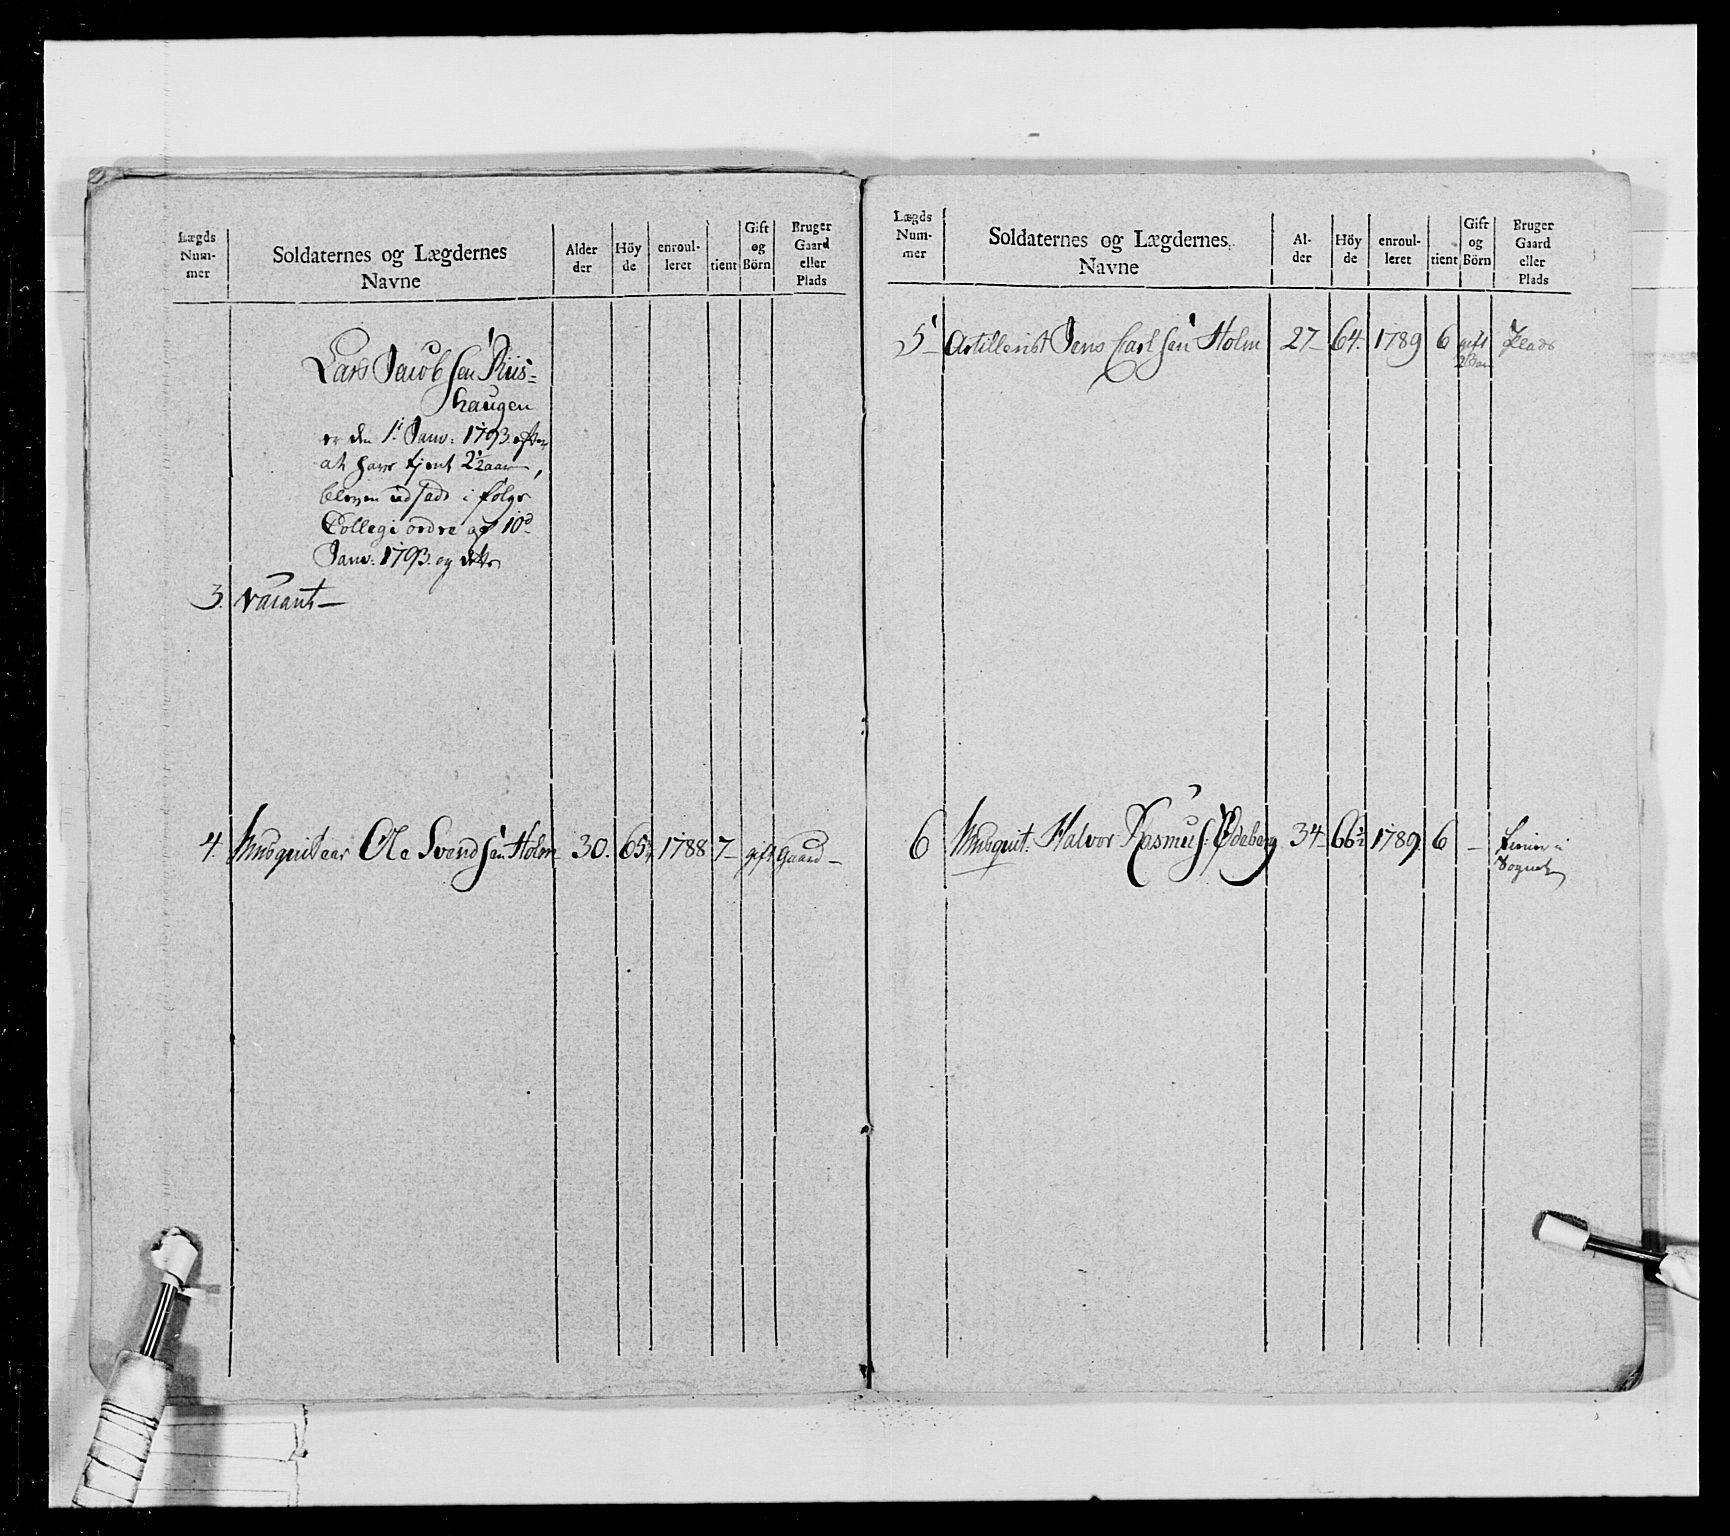 Lægds Num- mer
Soldaternes og Lægdernes Navne
Alder der
Höy de
enroul- leret
tient
Gift og Börn
Bruger Gaard eller Plads
Lars Jacobsen Riis=
haugen
er den 1te Janv: 1793. efter
at have tjent 2 1/2 aar,
bleven udsadt i følge
Collegi ordre af 10d
Janv: 1793. og dette
3. vacant —
4. Musquitaar Ole Svendsen Holm 30. 65 1788 7 — gift Gaard —
Lægds Num- mer
Soldaternes og Lægdernes Navne
Al- der
Höy de
enroul- leret
tient
Gift og Börn
Bruger Gaard eller Plads
5 — Artillerist Jens Carlsen Holm 27 — 64. 1789 6 gift Plads
6 Musquit. Halvor Rasmus: Ødeberg 34 — 66 1/2 1789. 6 — tiener i
Sognet